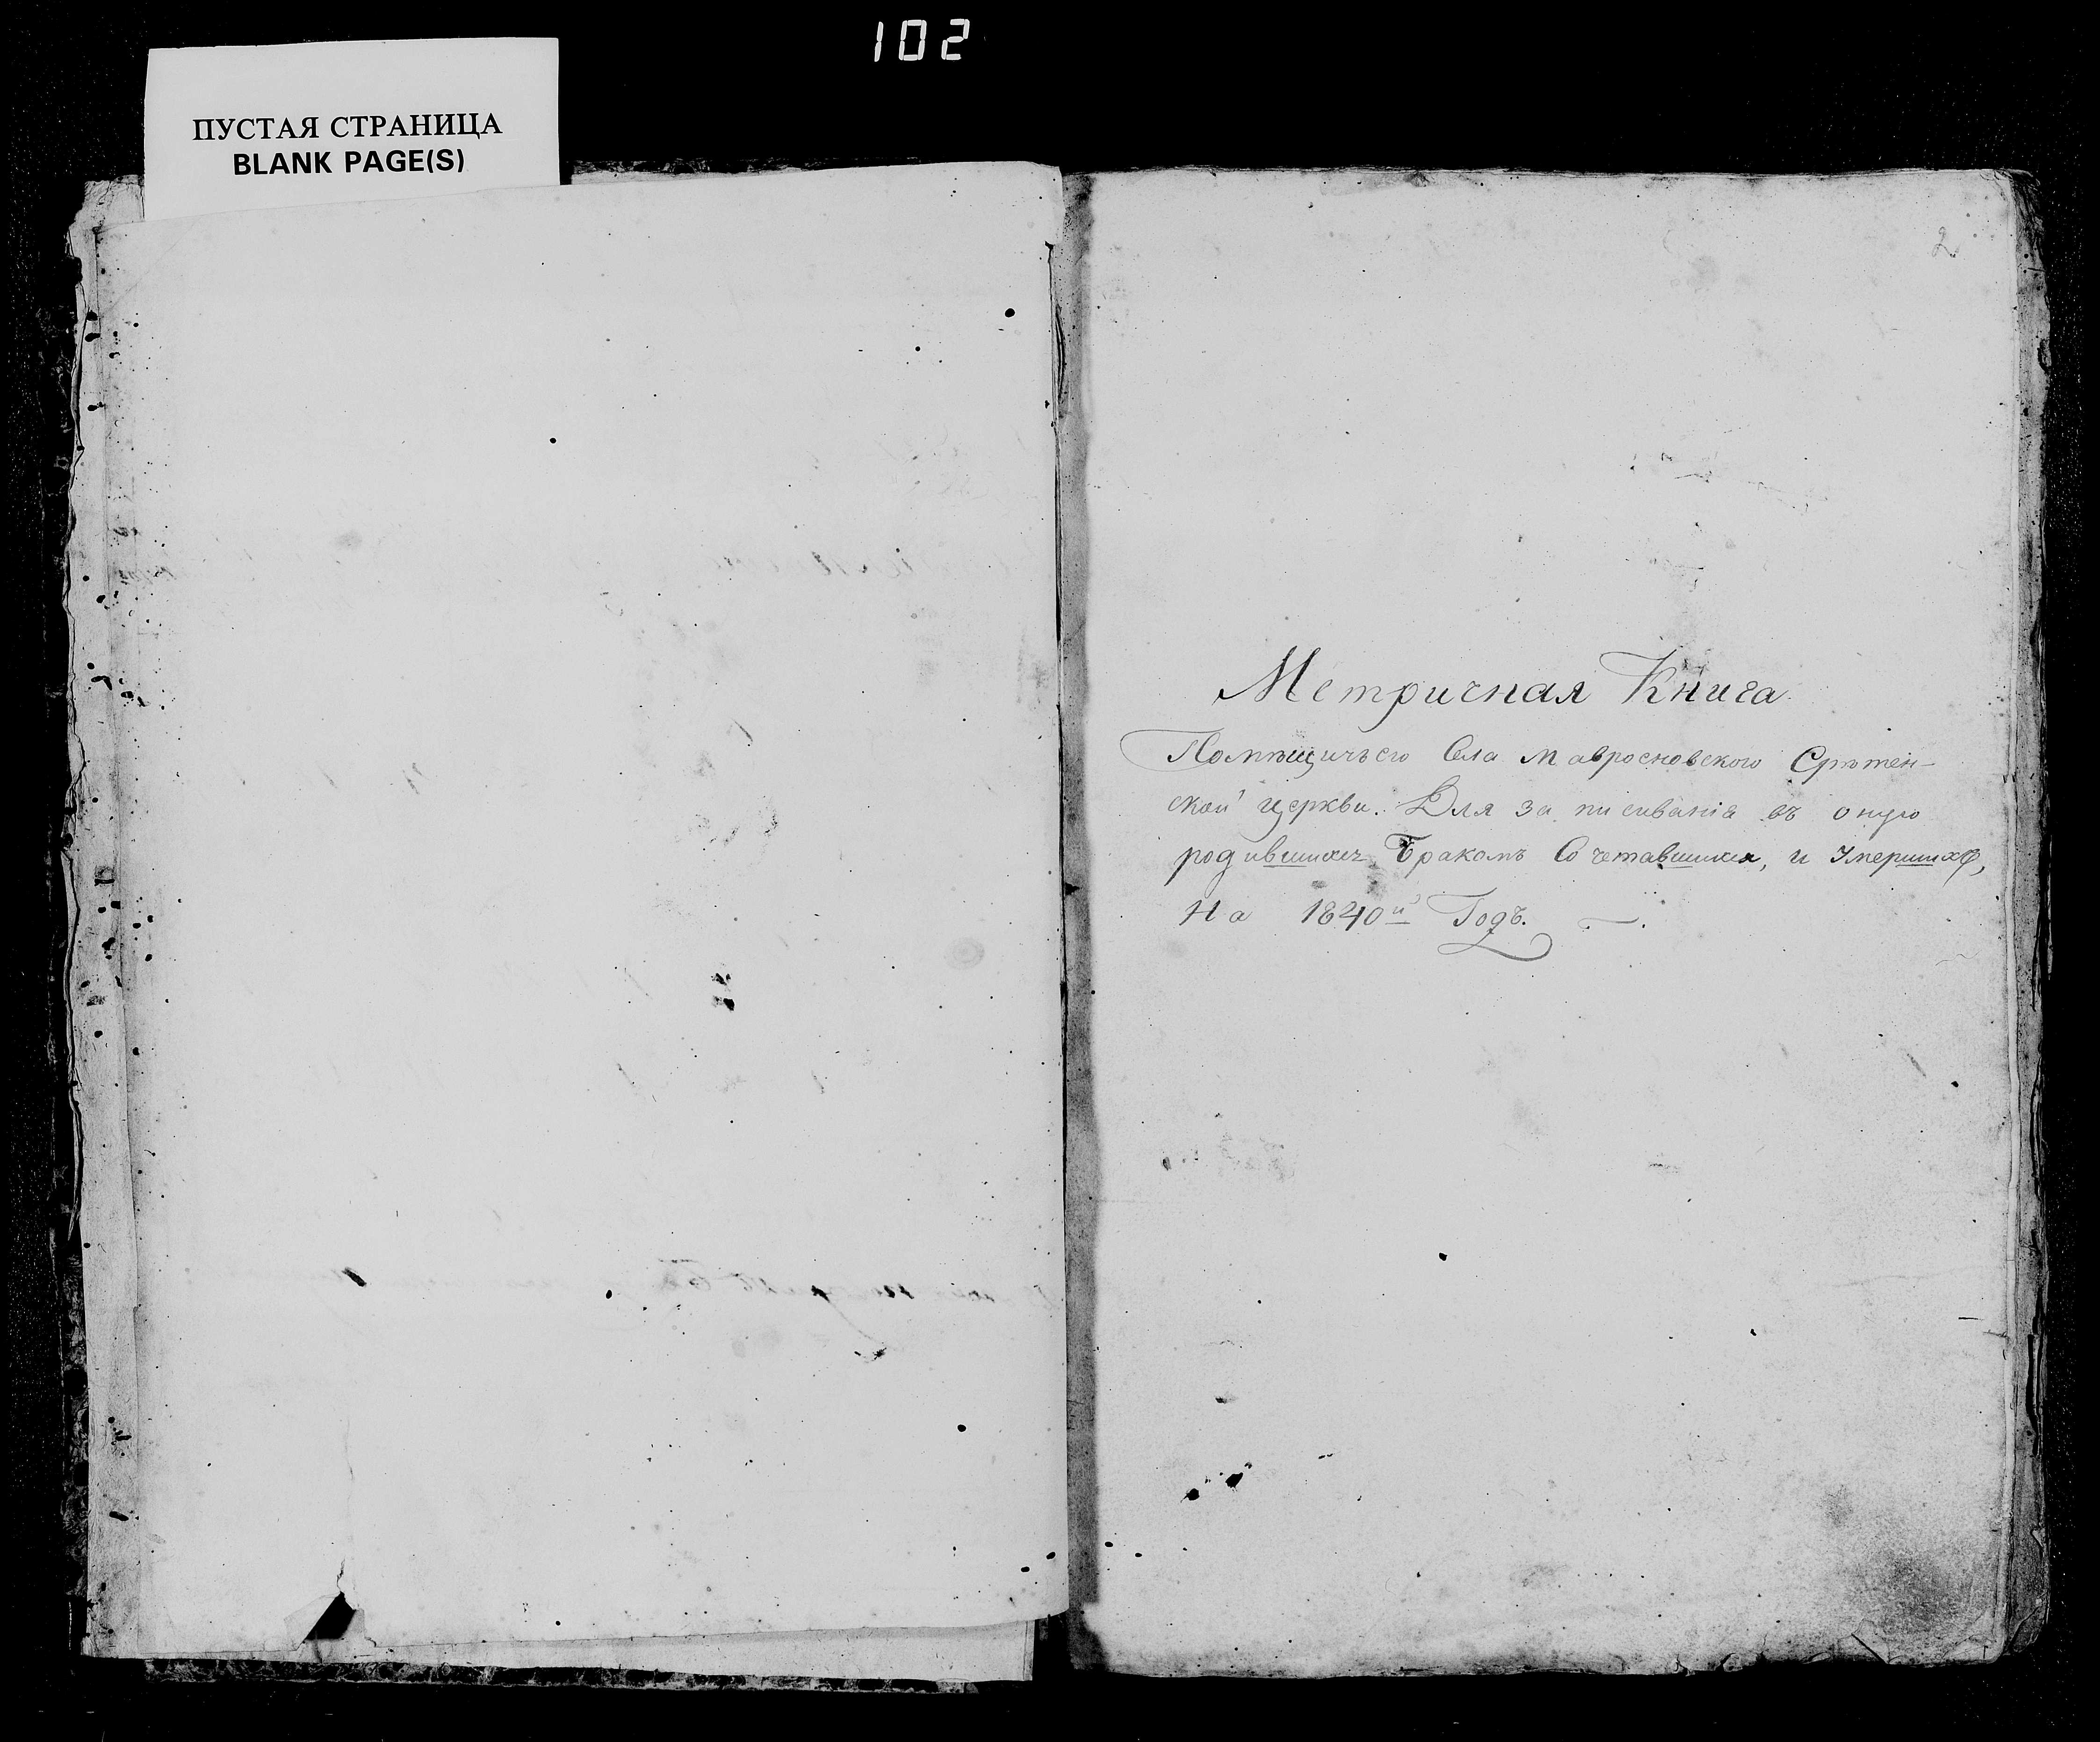 102
ПУСТАЯ СТРАНИЦА
BLANK PAGE(S)
2
Метричная Книга
Помѣщичьего Села Мавросновского Срѣтен-
ской церкви. Для записиванія въ оную
родившихъ Бракомъ Сочетавшихся, и Умершихъ,
На 1840й Годъ.